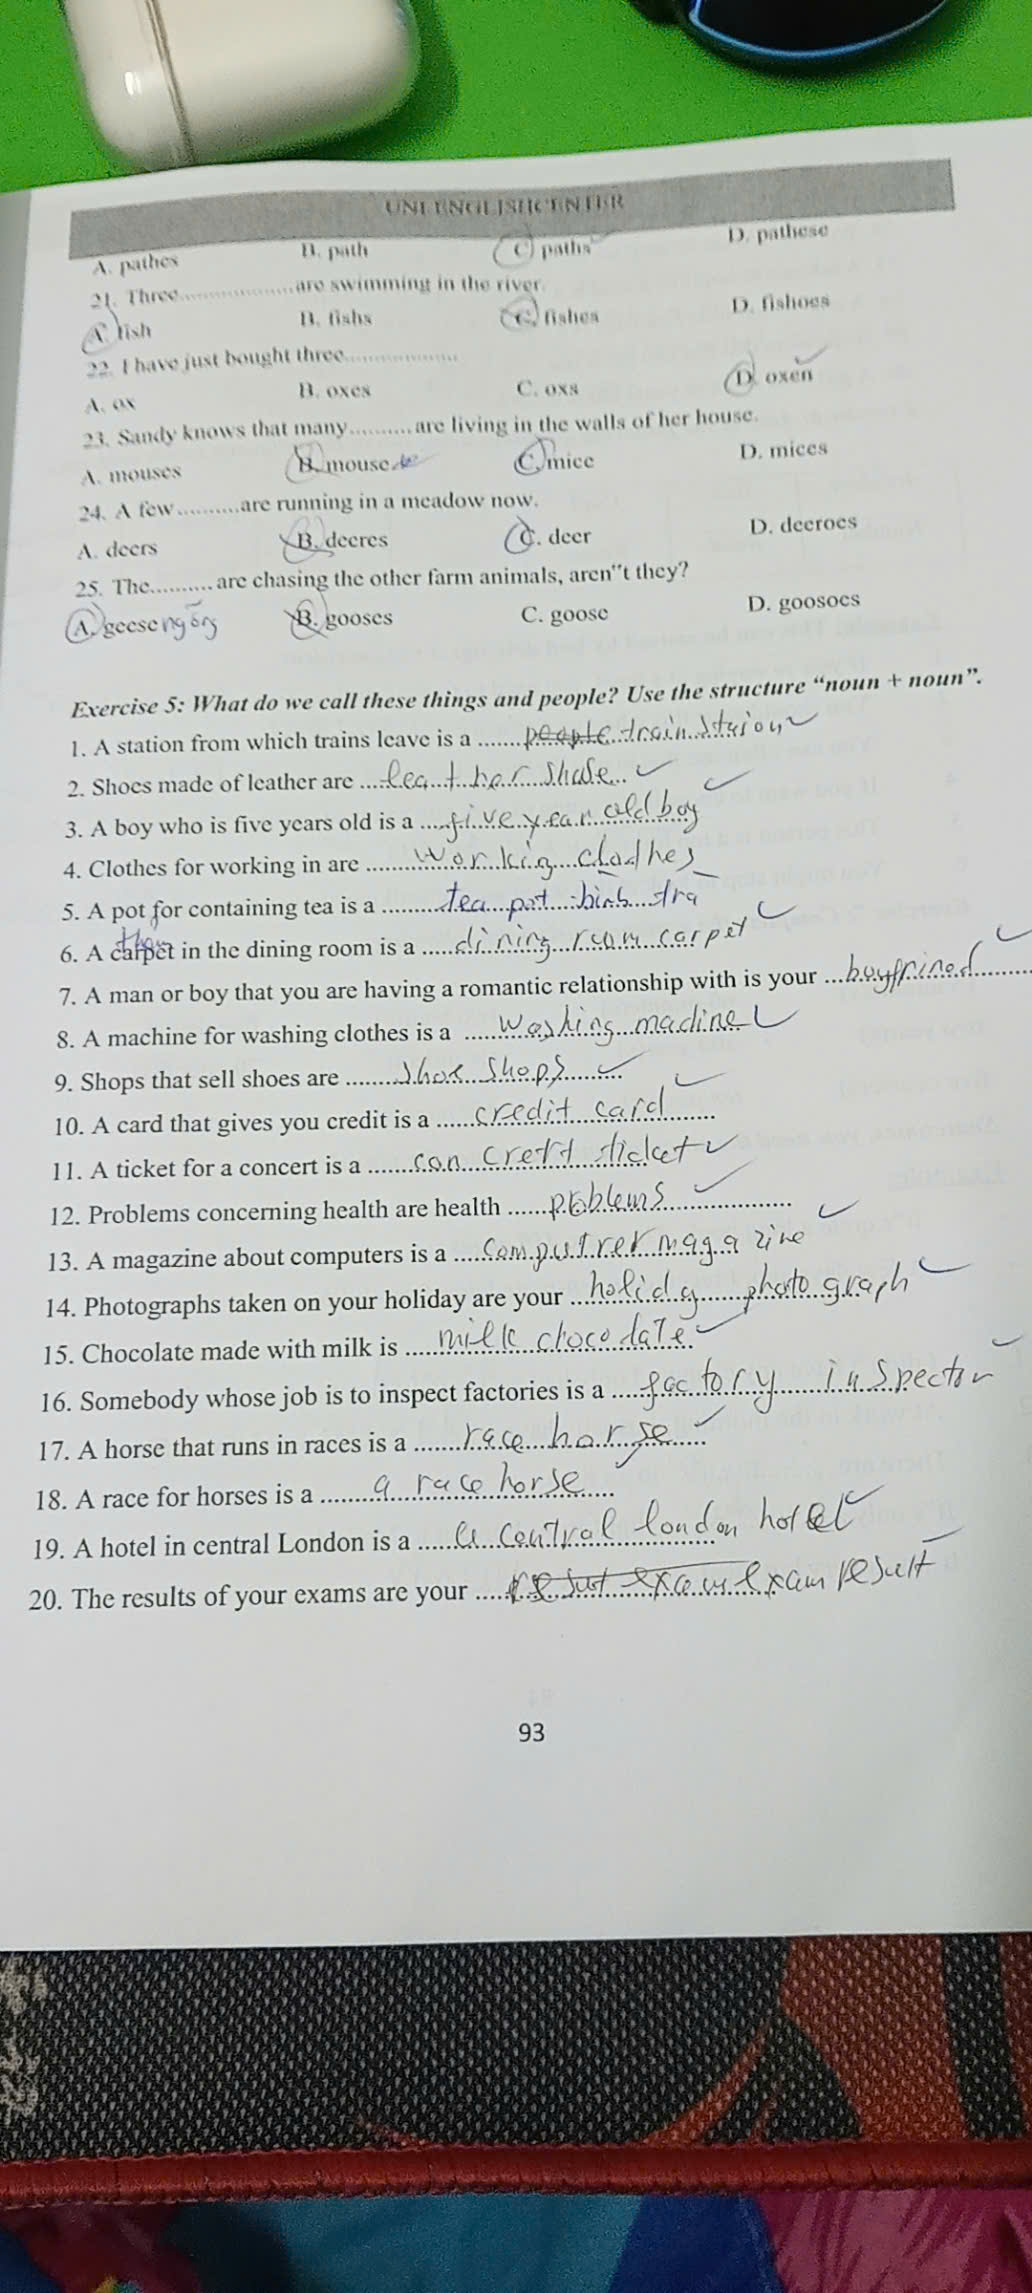 UNI ENGLISHCENTER
A. pathes B. path C. paths D. pathese
21. Three..................are swimming in the river.
A. fish B. fishs C. fishes D. fishoes
22. I have just bought three..................
A. ox B. oxes C. oxs D. oxen
23. Sandy knows that many..........are living in the walls of her house.
A. mouses B. mouse C. mice D. mices
24. A few..........are running in a meadow now.
A. deers B. deeres C. deer D. deeroes
25. The.......... are chasing the other farm animals, aren"t they?
A. geese ngỗng B. gooses C. goose D. goosoes
Exercise 5: What do we call these things and people? Use the structure “noun + noun”.
1. A station from which trains leave is a ....... people train staion
2. Shoes made of leather are .... leather shose
3. A boy who is five years old is a .... five year old boy
4. Clothes for working in are ........ working clothes
5. A pot for containing tea is a ........ tea pot bình trà
6. A carpet thảm in the dining room is a ..... dining room carpet
7. A man or boy that you are having a romantic relationship with is your ... boyfrined
8. A machine for washing clothes is a ..... washing machine
9. Shops that sell shoes are ....... shoe shops
10. A card that gives you credit is a ...... credit card
11. A ticket for a concert is a ....... con crett ticket
12. Problems concerning health are health ...... problems
13. A magazine about computers is a .... computrer magazine
14. Photographs taken on your holiday are your ... holiday photograph
15. Chocolate made with milk is ..... milk chocolate
16. Somebody whose job is to inspect factories is a .... factory inspector
17. A horse that runs in races is a ....... race horse
18. A race for horses is a ........ a race horse
19. A hotel in central London is a ..... a central london hotel
20. The results of your exams are your ..... resut exam exam result
93